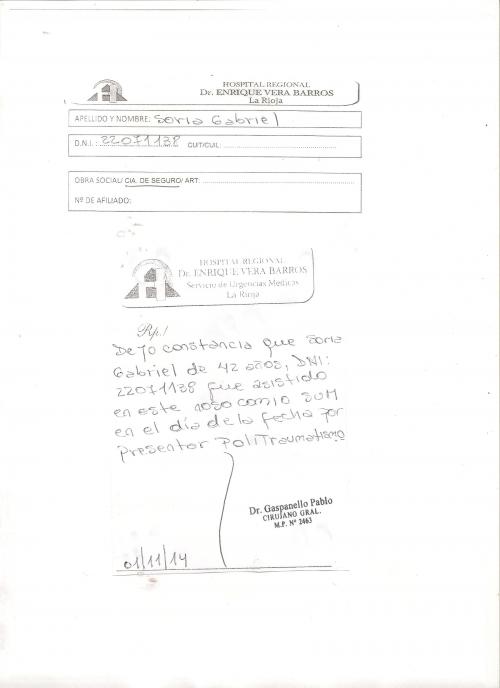 HOSPITAL REGIONAL
Dr. ENRIQUE VERA BARROS
La Rioja
APELLIDO Y NOMBRE: Soria Gabriel
D.N.I.: 22071138 CUIT/CUIL:
OBRA SOCIAL/ CIA. DE SEGURO/ ART:
Nº DE AFILIADO:
HOSPITAL REGIONAL
Dr. ENRIQUE VERA BARROS
Servicio de Urgencias Médicas
La Rioja
Rp./
Dejo constancia que Soria
Gabriel de 42 años, DNI:
22071138 fue asistido
en este nosocomio SUM
en el día de la fecha por
presentar PoliTraumatismo
Dr. Gaspanello Pablo
CIRUJANO GRAL.
M.P. Nº 2463
01/11/14